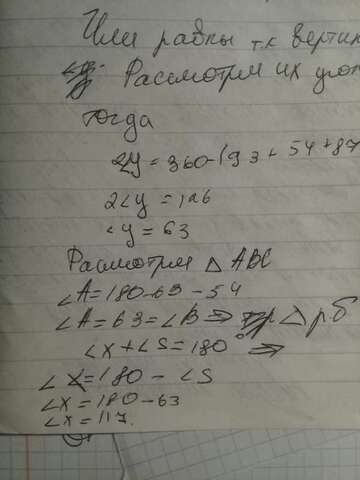 Или равны т.к верти
Рассмотрим их
тогда
2∠y = 360-(93 + 54 + 87
2∠y = 126
∠y = 63
Рассмотрим △ ABC
∠A = 180-63-54
∠A = 63 = ∠B ⇒ △ р.б
∠x + ∠S = 180° ⇒
∠x = 180 - ∠S
∠x = 180 - 63
∠x = 117.